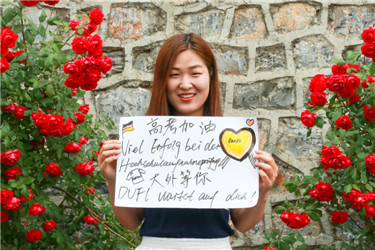 高考加油
Viel Erfolg bei der
Hochschulaufnahmeprüfung!!!
Danke
大外等你
DUFL wartet auf dich!